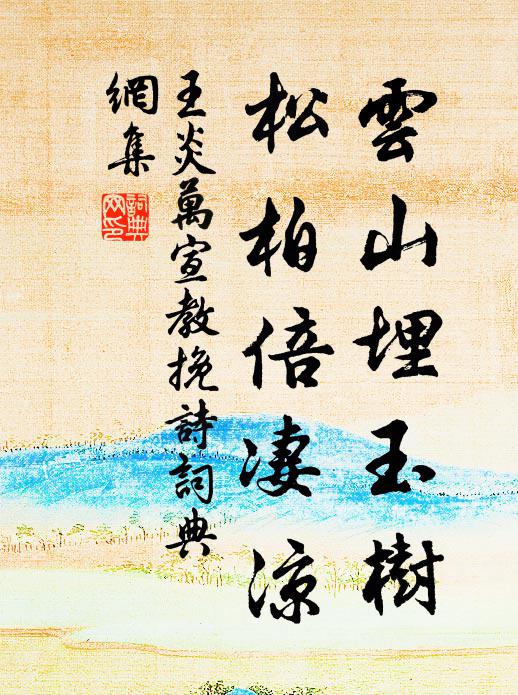 雲山埋玉樹
松柏倍凄涼
王炎萬宣教挽詩詞典
網集
詞典
网印